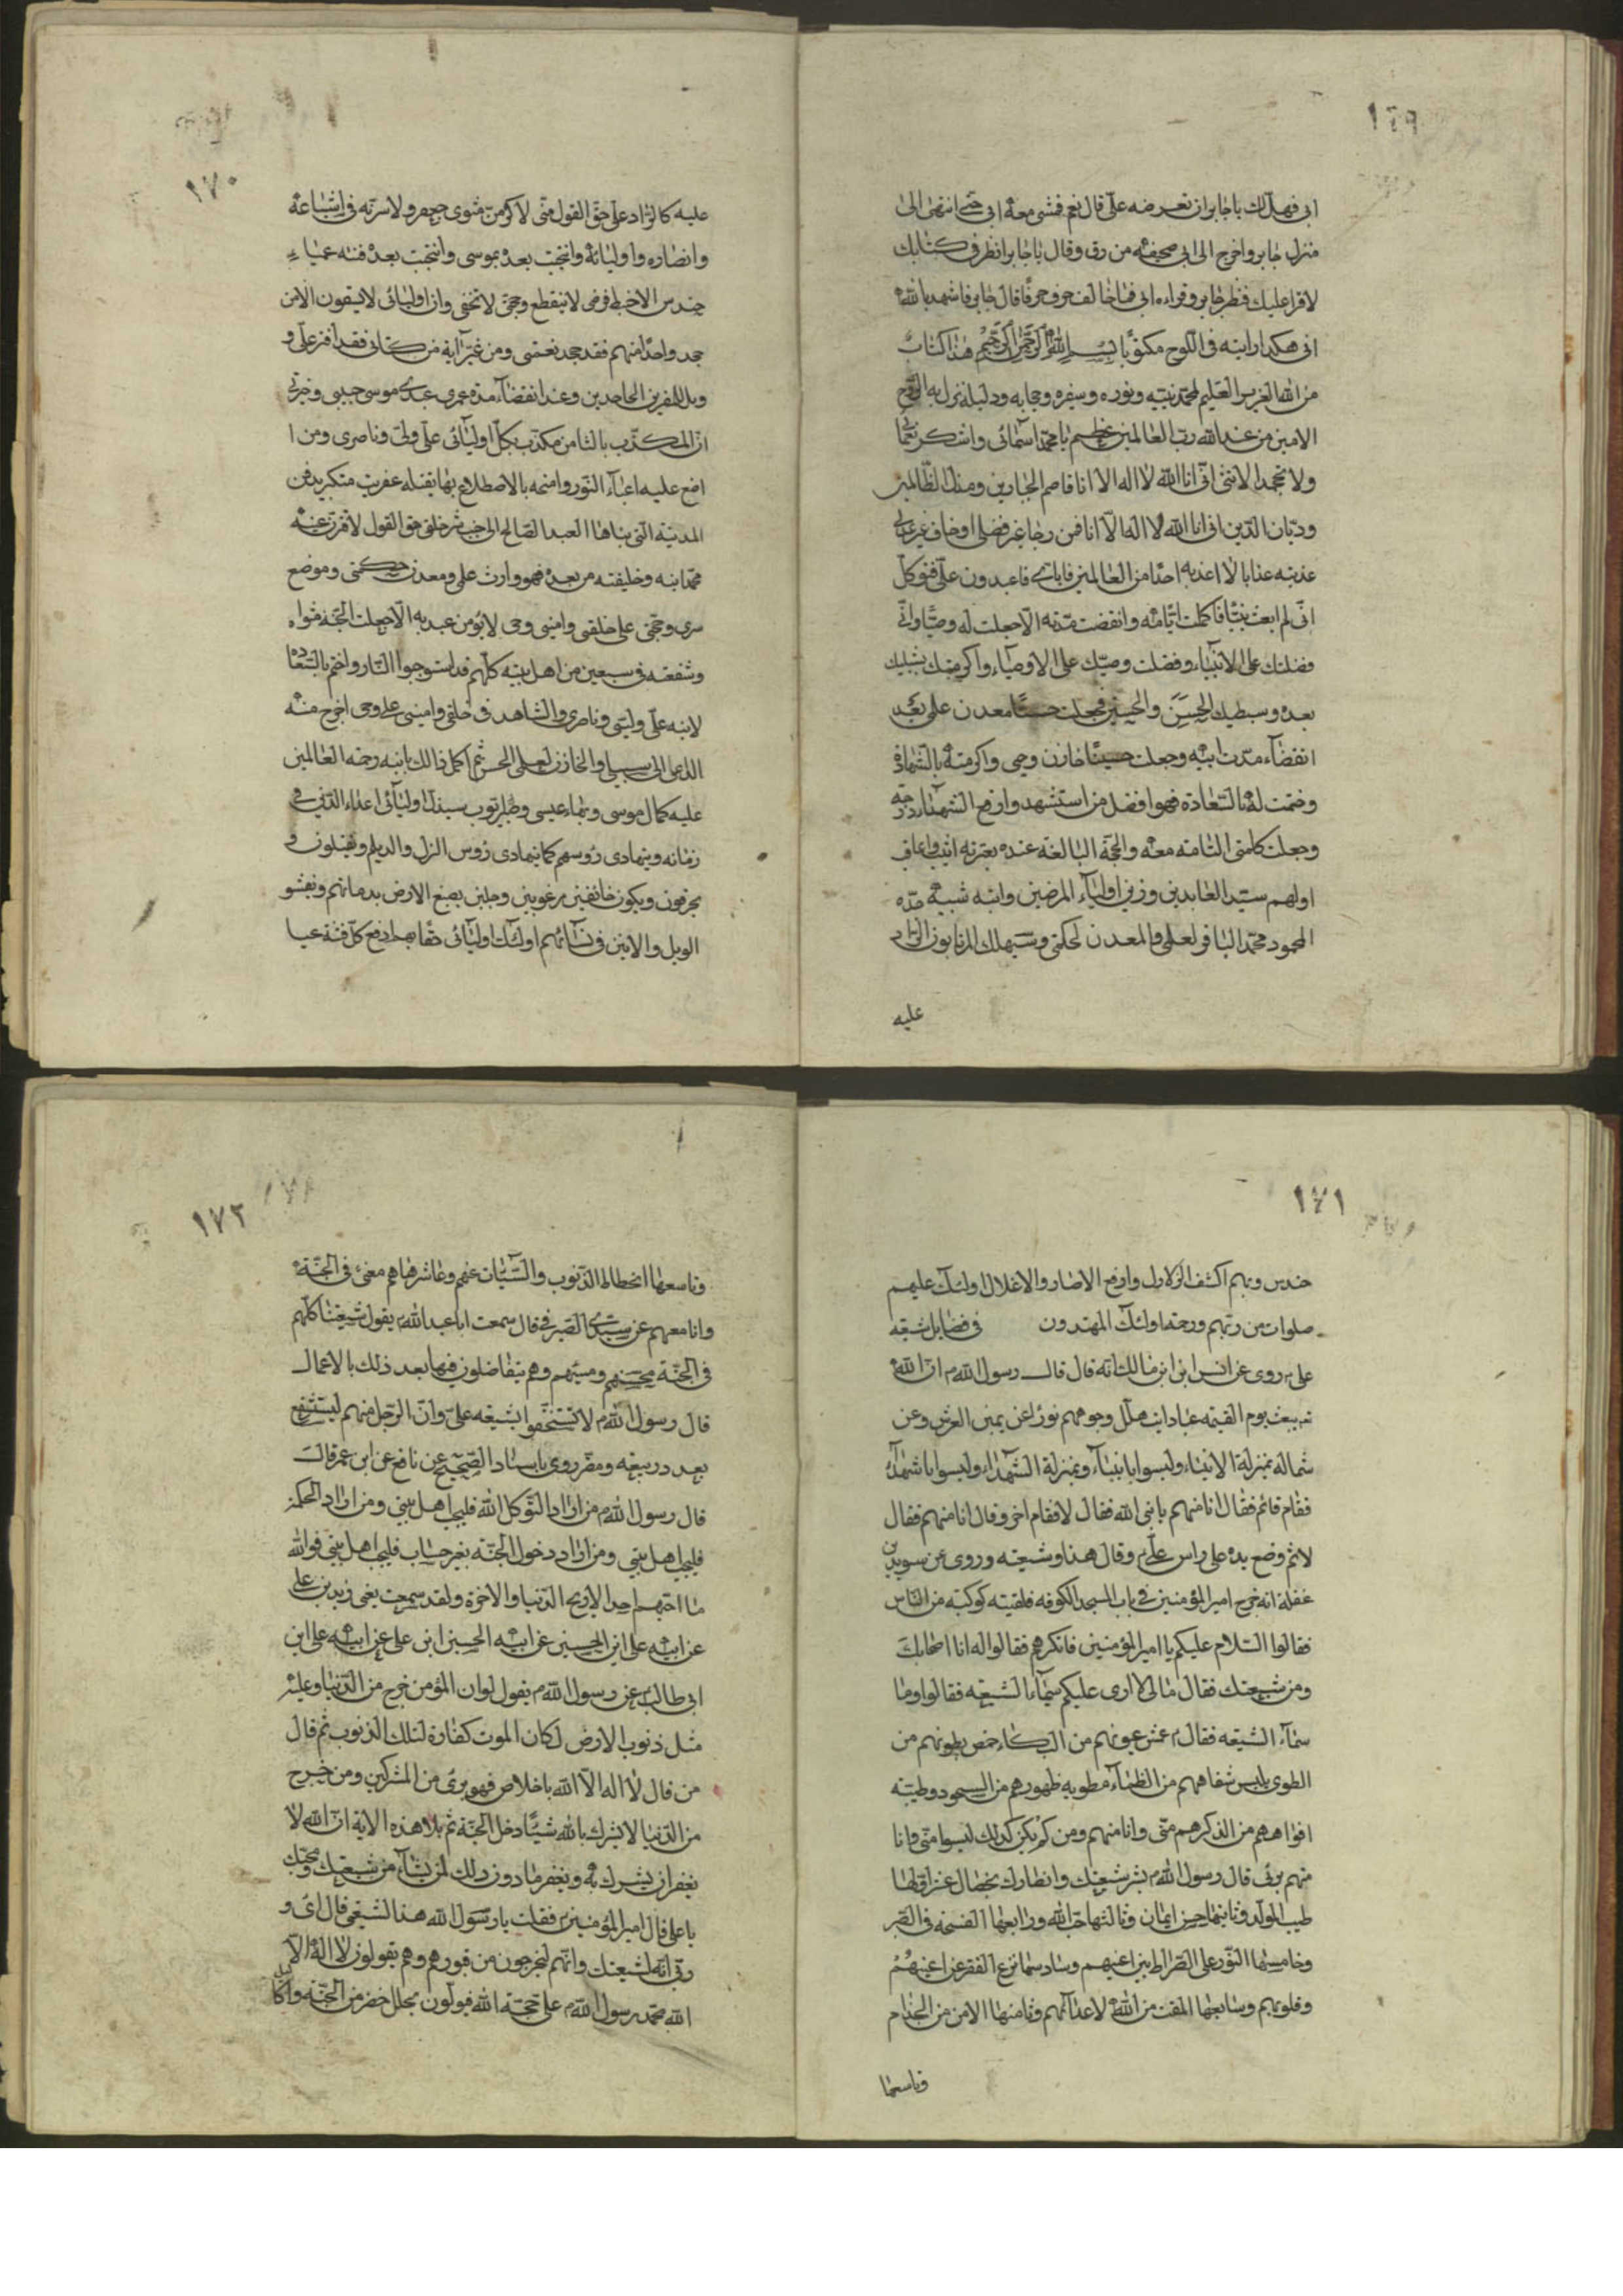 ١٦٩
ابى فهل لك يا جابر ان تعرضه على قال نعم فمشى معه ابى حتى انتهى الى
منزل جابر واخرج الى ابى صحيفة من رق وقال يا جابر انظر فى كتابك
لاقرا عليك فنظر جابر وقراءه ابى فما خالف حرف حرفا قال جابر فاشهد بالله
انى هكذا رايته فى اللوح مكتوبا بسم الله الرحمن الرحيم هذا كتاب
من الله العزيز العليم لمحمد نبيه ونوره وسفيره وحجابه ودليله نزل به الروح
الامين من عند الله رب العالمين عظم يا محمد اسمائى واشكر نعمائى
ولا تجحد الائى انى انا الله لا اله الا انا قاصم الجبارين ومذل الظالمين
وديان الدين انى انا الله لا اله الا انا فمن رجا غير فضلى او خاف غير عدلى
عذبته عذابا لا اعذبه احدا من العالمين فاياى فاعبدون على فتوكل
انى لم ابعث نبيا فاكملت ايامه وانقضت مدته الا جعلت له وصيا وانى
فضلتك على الانبياء وفضلت وصيك على الاوصياء واكرمتك بشبليك
بعده وسبطيك الحسن والحسين فجعلت حسنا معدن علمى بعد
انقضاء مدت ابيه وجعلت حسينا خازن وحيى واكرمته بالشهادة
وختمت له بالسعادة فهو افضل من استشهد وارفع الشهداء درجة
وجعلت كلمتى التامة معه والحجة البالغة عنده بعترته اثيب واعاقب
اولهم سيد العابدين وزين اولياء المرضين وابنه شبيه جده
المحمود محمد الباقر لعلمى والمعدن لحكمتى وسيهلك المرتابون الراد
عليه
١٧٠
عليه كالراد على حق القول منى لاكرمن مثوى جعفر ولاسرنه فى اشياعه
وانصاره واوليائه وانتجبت بعده بموسى وانتجبت بعده فتنه عمياء
حندس الا خيط فرضى لا ينقطع وحجتى لا تخفى وان اوليائى لا يسقون الا من
جحد واحدا منهم فقد جحد نعمتى ومن غير آية من كتابى فقد افترى على و
ويل للمفترين الجاحدين وعند انقضاء مدة عمرى عبدى موسى حبيبى وخيرتى
ان المكذب بالثامن مكذب بكل اوليائى على وليى وناصرى ومن ا
اضع عليه اعباء النور وامنحه بالاضطلاع بها يقتله عفريت متكبر يدفن
المدينة التى بناها العبد الصالح الى جنب شر خلقى حق القول لاقرن عينه
بمحمد ابنه وخليفته من بعده فهو وارث علمى ومعدن حكمتى وموضع
سرى وحجتى على خلقى وامينى وحى لا يؤمن عبد به الا جعلت الجنة مثواه
وشفعته فى سبعين من اهل بيته كلهم قد استوجبوا النار واختم بالسعادة
لابنه على وليى وناصرى والشاهد فى خلقى وامينى على وحى اخرج منه
الداعى الى سبيلى والخازن لعلمى الحسن ثم اكمل ذالك بابنه رحمة العالمين
عليه كمال موسى وبهاء عيسى وصبر ايوب سيذل اوليائى اعداء الدين فى
زمانه ويتهادى رؤسهم كما يتهادى رؤس الزل والديلم ويقتلون و
يحرقون ويكون خائفين مرغوبين وجلين بصبغ الارض بدمائهم ويفشو
الويل والانين فى نسائهم اولئك اوليائى حقا بهم ادفع كل فتنة عميا
١٧١
حندس وبهم اكشف الزلازل وارفع الاصار والاغلال اولئك عليهم
صلوات من ربهم ورحمة اولئك المهتدون فى فضايل شيعه
على روى عن انس ابن ابن مالك انه قال قال رسول الله ان الله
تع يبعث يوم القيمة عبادا يتهلل وجوههم نورا عن يمين العرش وعن
شماله بمنزلة الانبياء وليسوا بانبياء وبمنزلة الشهداء وليسوا باشهداء
فقام قائم فقال انا منهم يا نبى الله فقال لا فقام اخر وقال انا منهم فقال
لا ثم وضع يده على راس على وقال هذا وشيعته وروى عن سويد بن
غفلة انه خرج امير المؤمنين فى باب المسجد الكوفه فلقيته كوكبة من الناس
فقالوا السلام عليكم يا امير المؤمنين فانكرهم فقالوا له انا اصحابك
ومن شيعتك فقال مالى لا ارى عليكم سيماء الشيعة فقالوا وما
سماء الشيعه فقال عمش عيونهم من البكاء خمص بطونهم من
الطوى يلبس شفاههم من الظماء مطوية ظهورهم من السجود وطيبة
افواههم من الذكر هم منى وانا منهم ومن لم يكن كذلك ليسوا منى وانا
منهم برئ قال رسول الله بشر شيعتك وانصارك بخصال عشر اولها
طيب المولد وثانيها حسن ايمان وثالثها حب الله ورابعها الفسحة فى القبر
وخامسها النور على الصراط بين اعينهم وسادسها نزع الفقر عن اعينهم
وقلوبهم وسابعها المقت من الله لاعدائهم وثامنها الامن من الجذام
وتاسعها
١٧٢
وتاسعها انحطاط الذنوب والسيئات عنهم وعاشرها هم معى فى الجنة
وانا معهم عن سدير الصيرفى قال سمعت ابا عبد الله يقول شيعتنا كلهم
فى الجنة محسنهم ومسيئهم وهم يتفاضلون فيها بعد ذلك بالاعمال
قال رسول الله لا تستخفوا بشيعه على وان الرجل منهم ليستشفع
بعدد ربيعه ومضر روى باسناد الصحيح عن نافع عن ابن عمر قالت
قال رسول الله من اراد التوكل الله فليحب اهل بيتى ومن اراد الحكمة
فليحب اهل بيتى ومن اراد دخول الجنة بغير حساب فليحب اهل بيتى فوالله
ما احبهم احد الا ربح الدنيا والاخرة ولقد سمعت يعنى زيد بن على
عن ابيه على ابن الحسين عن ابيه الحسين ابن على عن ابيه على ابن
ابى طالب عن رسول الله يقول لو ان المؤمن خرج من الدنيا وعليه
مثل ذنوب الارض لكان الموت كفارة لتلك الذنوب ثم قال
من قال لا اله الا الله باخلاص فهو برئ من المشركين ومن خرج
من الدنيا لا يشرك بالله شيئا دخل الجنة ثم تلا هذه الاية ان الله لا
يغفر ان يشرك به ويغفر ما دون ذلك لمن يشاء من شيعتك ومحبك
يا على قال امير المؤمنين فقلت يا رسول الله هذا لشيعتى قال اى و
ربى انه لشيعتك وانهم ليخرجون من قبورهم وهم يقولون لا اله الا
الله محمد رسول الله على حجة الله فيؤلون بحلل خضر من الجنة واكاليل